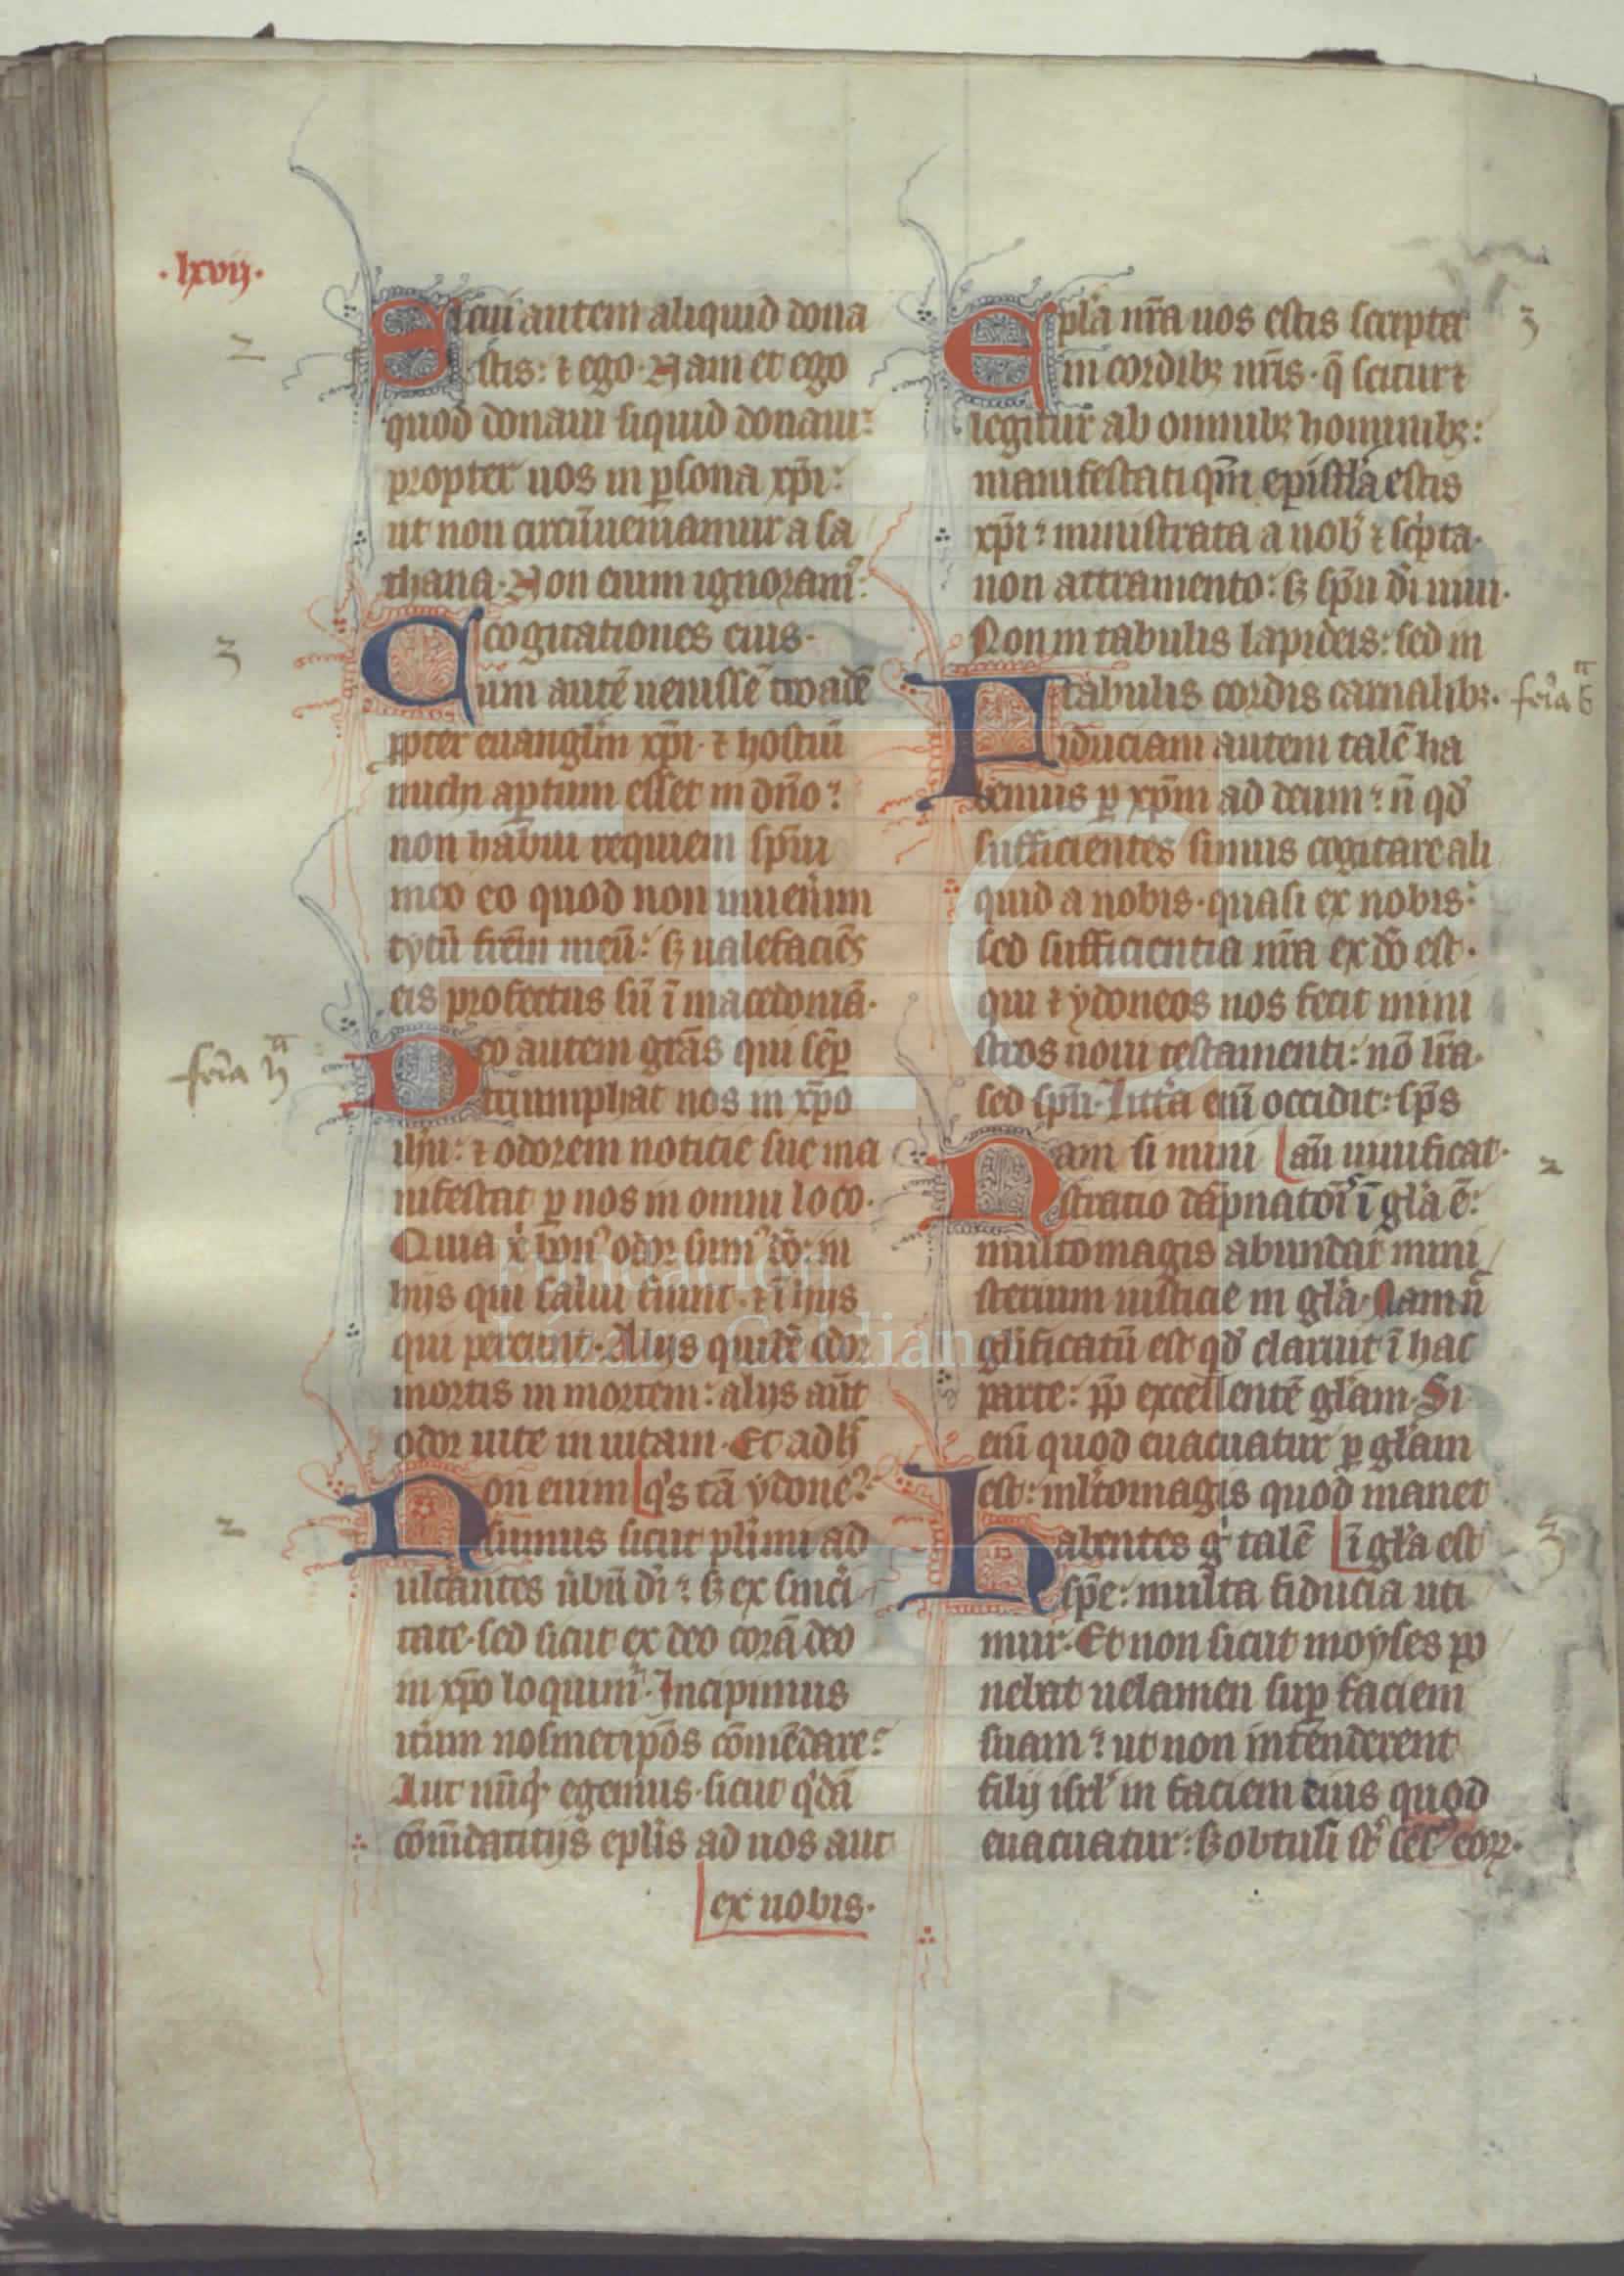 ·lxvij·
2
Si cui autem aliquid dona
stis: ⁊ ego. Nam et ego
quod donaui siquid donaui:
propter uos in ꝑsona xp̄i:
ut non circūueniamur a sa
thana. Non enim ignoramꝰ:
3
cogitationes eius.
Cum autē uenissē troadē
ꝓpter euangl̄m xp̄i. ⁊ hostiū
michi aꝑtum esset in dn̄o:
non habui requiem sp̄ui
meo eo quod non inuenim
tytū fr̄em meū: sꝫ ualefaciēs
eis profectus sū ī macedoniā.
feria ij
Deo autem gr̄as qui sēꝑ
triumphat nos in xp̄o
ihū: ⁊ odorem noticie sue ma
nifestat ꝑ nos in omni loco.
Quia x̄ bonꝰ odor sumꝰ dō: in
hijs qui salui fiunt. ⁊ ī hijs
qui pereunt. Alijs quidē odor
mortis in mortem: alijs aūt
odor uite in uitam. Et ad h̄
2
Non enim qͥs tā ydoneꝰ?
sumus sicut pl̄imi ad
ulterantes ūbū dī: sꝫ ex sinc̄i
tate. sed sicut ex deo corā deo
in xp̄o loquimꝰ. Incipimus
it̄um nosmetip̄os cōmēdare?
Aut nūqͥ egemus. sicut qͥdā
cōmēdatitijs epl̄is ad uos aut
ex uobis.
3
Epl̄a nr̄a uos estis scripta
in cordibꝫ nr̄is. q̄ scitur ⁊
legitur ab omnibꝫ hominibꝫ:
manifestati qm̄ epistl̄a estis
xp̄i: ministrata a nob̄ ⁊ sc̄pta.
non attramento: sꝫ sp̄u dī uiui.
Non in tabulis lapideis: sed in
tabulis cordis carnalibꝫ.
feria
Fiduciam autem talē ha
bemus ꝑ xp̄m ad deum: n̄ qd̄
sufficientes simus cogitare ali
quid a nobis. quasi ex nobis:
sed sufficientia nr̄a ex dō est.
qui ⁊ ydoneos nos fecit mini
stros noui testamenti: nō lr̄a.
sed sp̄u. Litt̄a eni occidit: sp̄s
2
Nam si mini aūt uiuificat.
stratio dāpnatoīs ī gl̄a ē:
multomagis abundat mini
sterium iusticie in gl̄a. Nam n̄
gl̄ificatū est qd̄ claruit ī hac
parte: ꝓp̄ excellentē gl̄am. Si
eni quod euacuatur ꝑ gl̄am
est: ml̄tomagis quod manet
3
Habentes gͥ talē ī gl̄a est
sp̄e: multa fiducia uti
mur. Et non sicut moyses po
nebat uelamen suꝑ faciem
suam: ut non intenderent
filij isrl̄ in faciem eius quod
euacuatur: sꝫ obtusi st̄ sēsꝰ eoꝝ.
Fundación
Lázaro Galdiano